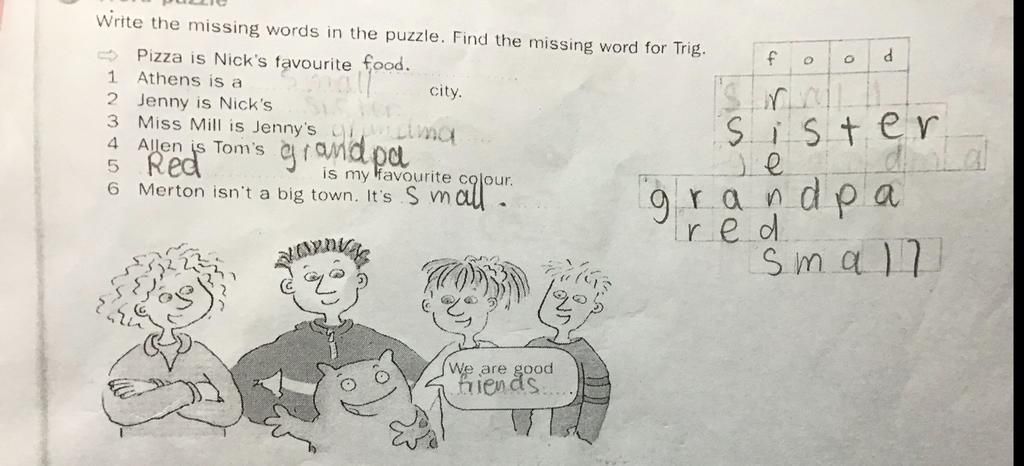 Write the missing words in the puzzle. Find the missing word for Trig.
⇨ Pizza is Nick's favourite food.
1 Athens is a small city.
2 Jenny is Nick's sister
3 Miss Mill is Jenny's grandma
4 Allen is Tom's grandpa
5 Red is my favourite colour.
6 Merton isn't a big town. It's Small.
f o o d
s r a l l
s i s t e r
e d m a
g r a n d p a
r e d
s m a l l
We are good
friends